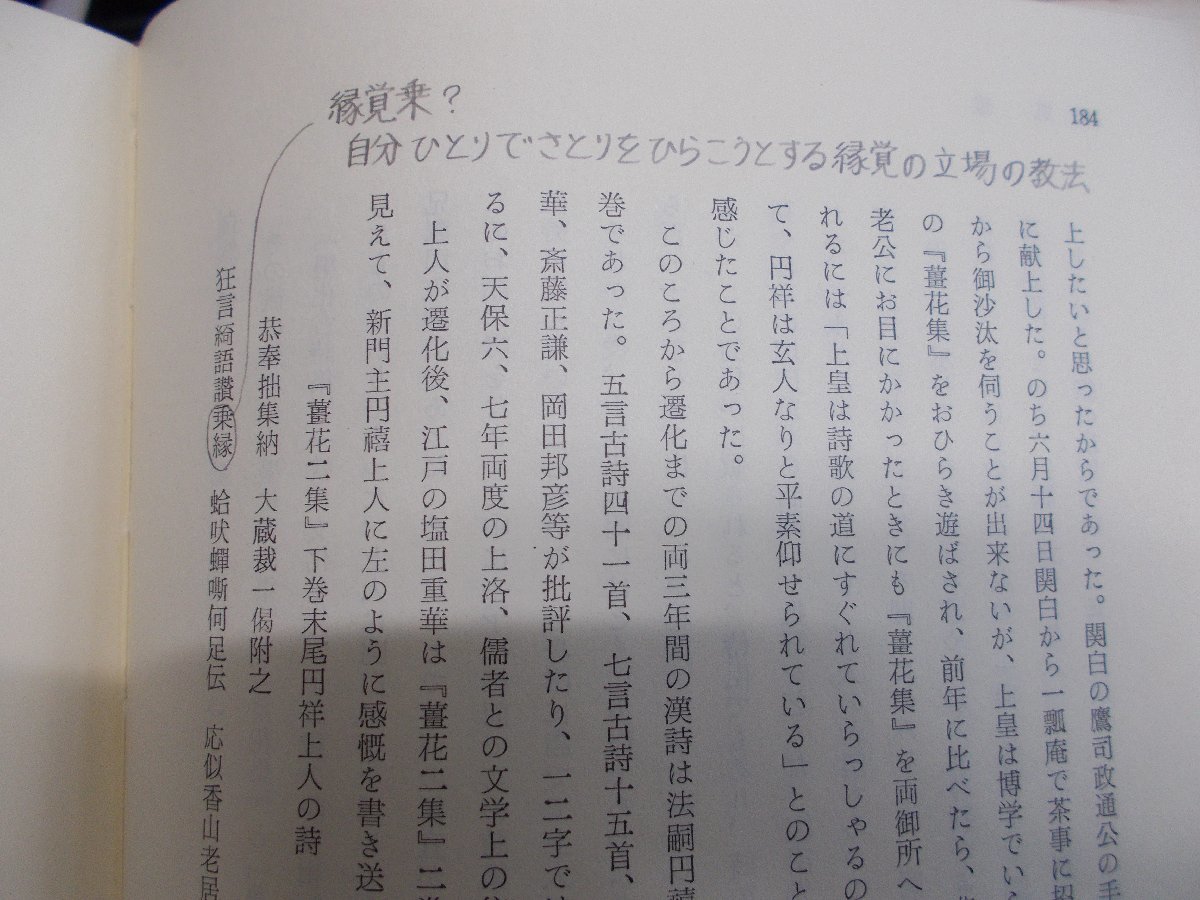 縁覚乗?
自分ひとりでさとりをひらこうとする縁覚の立場の教法
184
上したいと思ったからであった。関白の鷹司政通公の手
に献上した。のち六月十四日関白から一瓢庵で茶事に招
から御沙汰を伺うことが出来ないが、上皇は博学でいら
の『薑花集』をおひらき遊ばされ、前年に比べたら、
老公にお目にかかったときにも『薑花集』を両御所へ
れるには「上皇は詩歌の道にすぐれていらっしゃるの
て、円祥は玄人なりと平素仰せられている」とのこと
感じたことであった。
このころから遷化までの両三年間の漢詩は法嗣円禧
巻であった。五言古詩四十一首、七言古詩十五首、
華、斎藤正謙、岡田邦彦等が批評したり、一二字では
るに、天保六、七年両度の上洛、儒者との文学上の
上人が遷化後、江戸の塩田重華は『薑花二集』二
見えて、新門主円禧上人に左のように感慨を書き送
『薑花二集』下巻末尾円祥上人の詩
恭奉拙集納 大蔵裁一偈附之
狂言綺語讃乗縁 蛤吠蟬嘶何足伝 応似香山老居